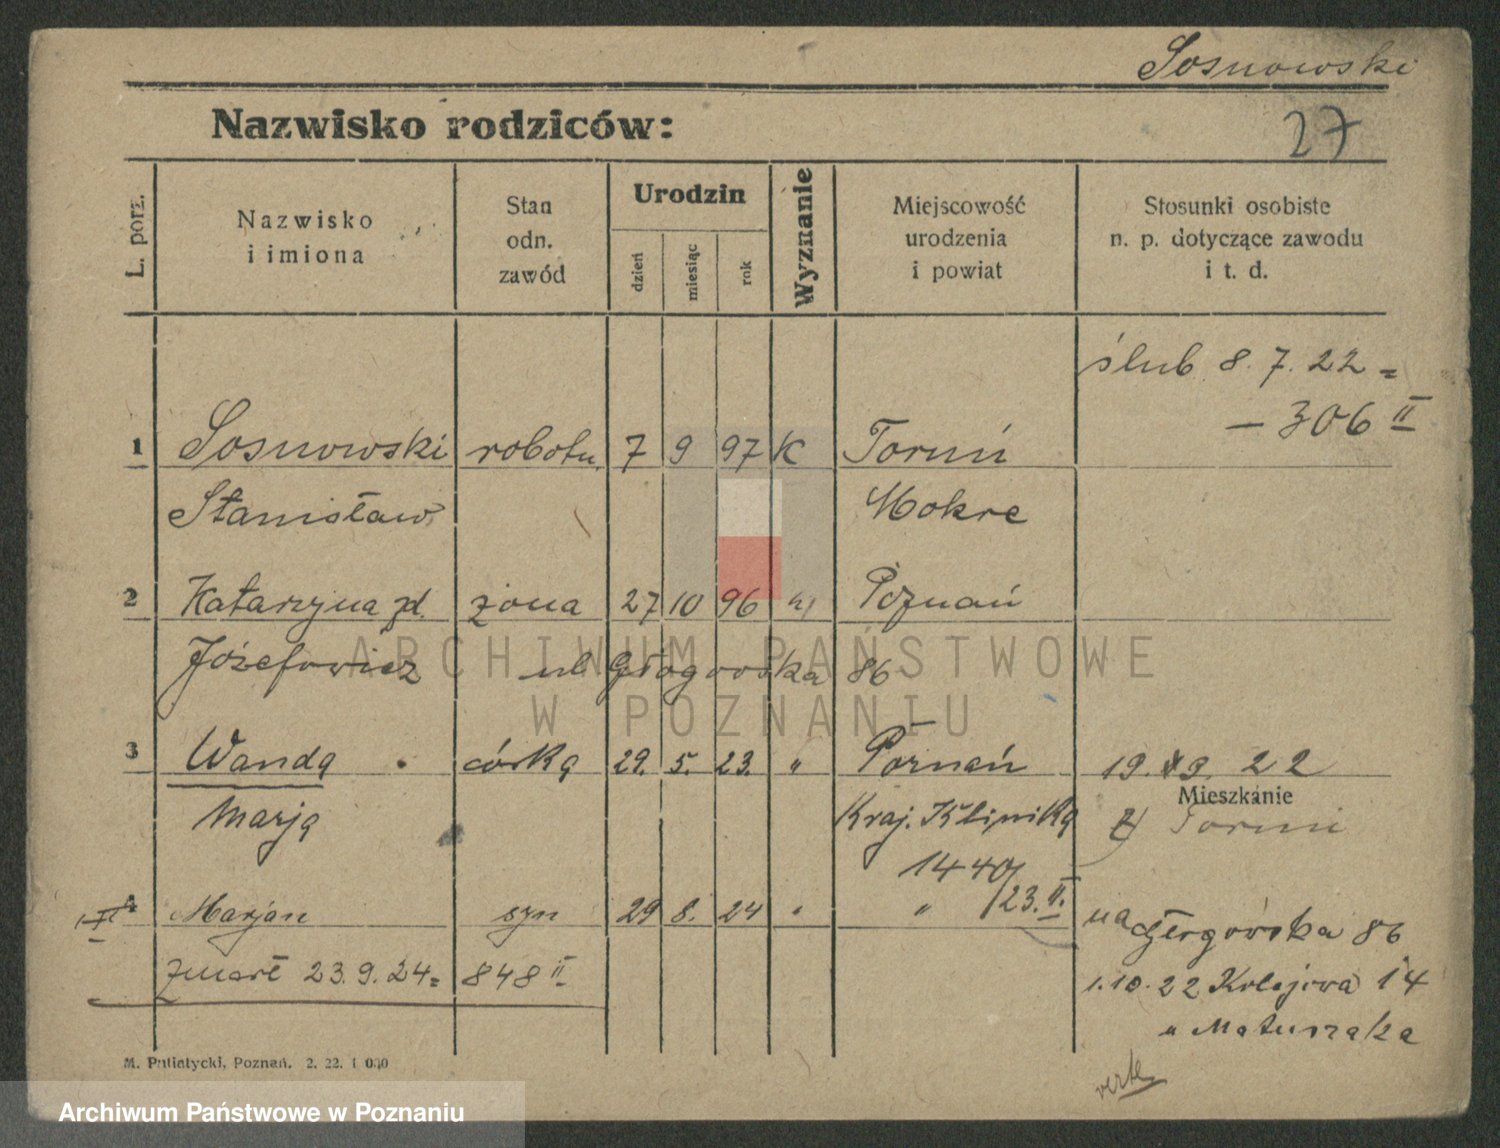 Sosnowski
Nazwisko rodziców:
27
L. porz.
Nazwisko i imiona
Stan odn. zawód
Urodzin
dzień
miesiąc
rok
Wyznanie
Miejscowość urodzenia i powiat
Stosunki osobiste n. p. dotyczące zawodu i t. d.
ślub 8. 7. 22 =
– 306 II
1 Sosnowski robotn. 7 9 97 K Toruń
Stanisław Mokre
2 Katarzyna zd. żona 27 10 96 " Poznań
Józefowicz ul Głogowska 86
3 Wanda córka 29. 5. 23. " Poznań 19. 9. 22
Mieszkanie
Marja Kraj. Klinika z Toruń
1440/23. II.
4 Marjan syn 29 8. 24 " "
na Głogowska 86
zmarł 23. 9. 24 = 848 II
1. 10. 22 Kolejowa 14
u Matuszaka
verte
M. Putiatycki, Poznań. 2. 22. 1 000
ARCHIWUM PAŃSTWOWE
W POZNANIU
Archiwum Państwowe w Poznaniu